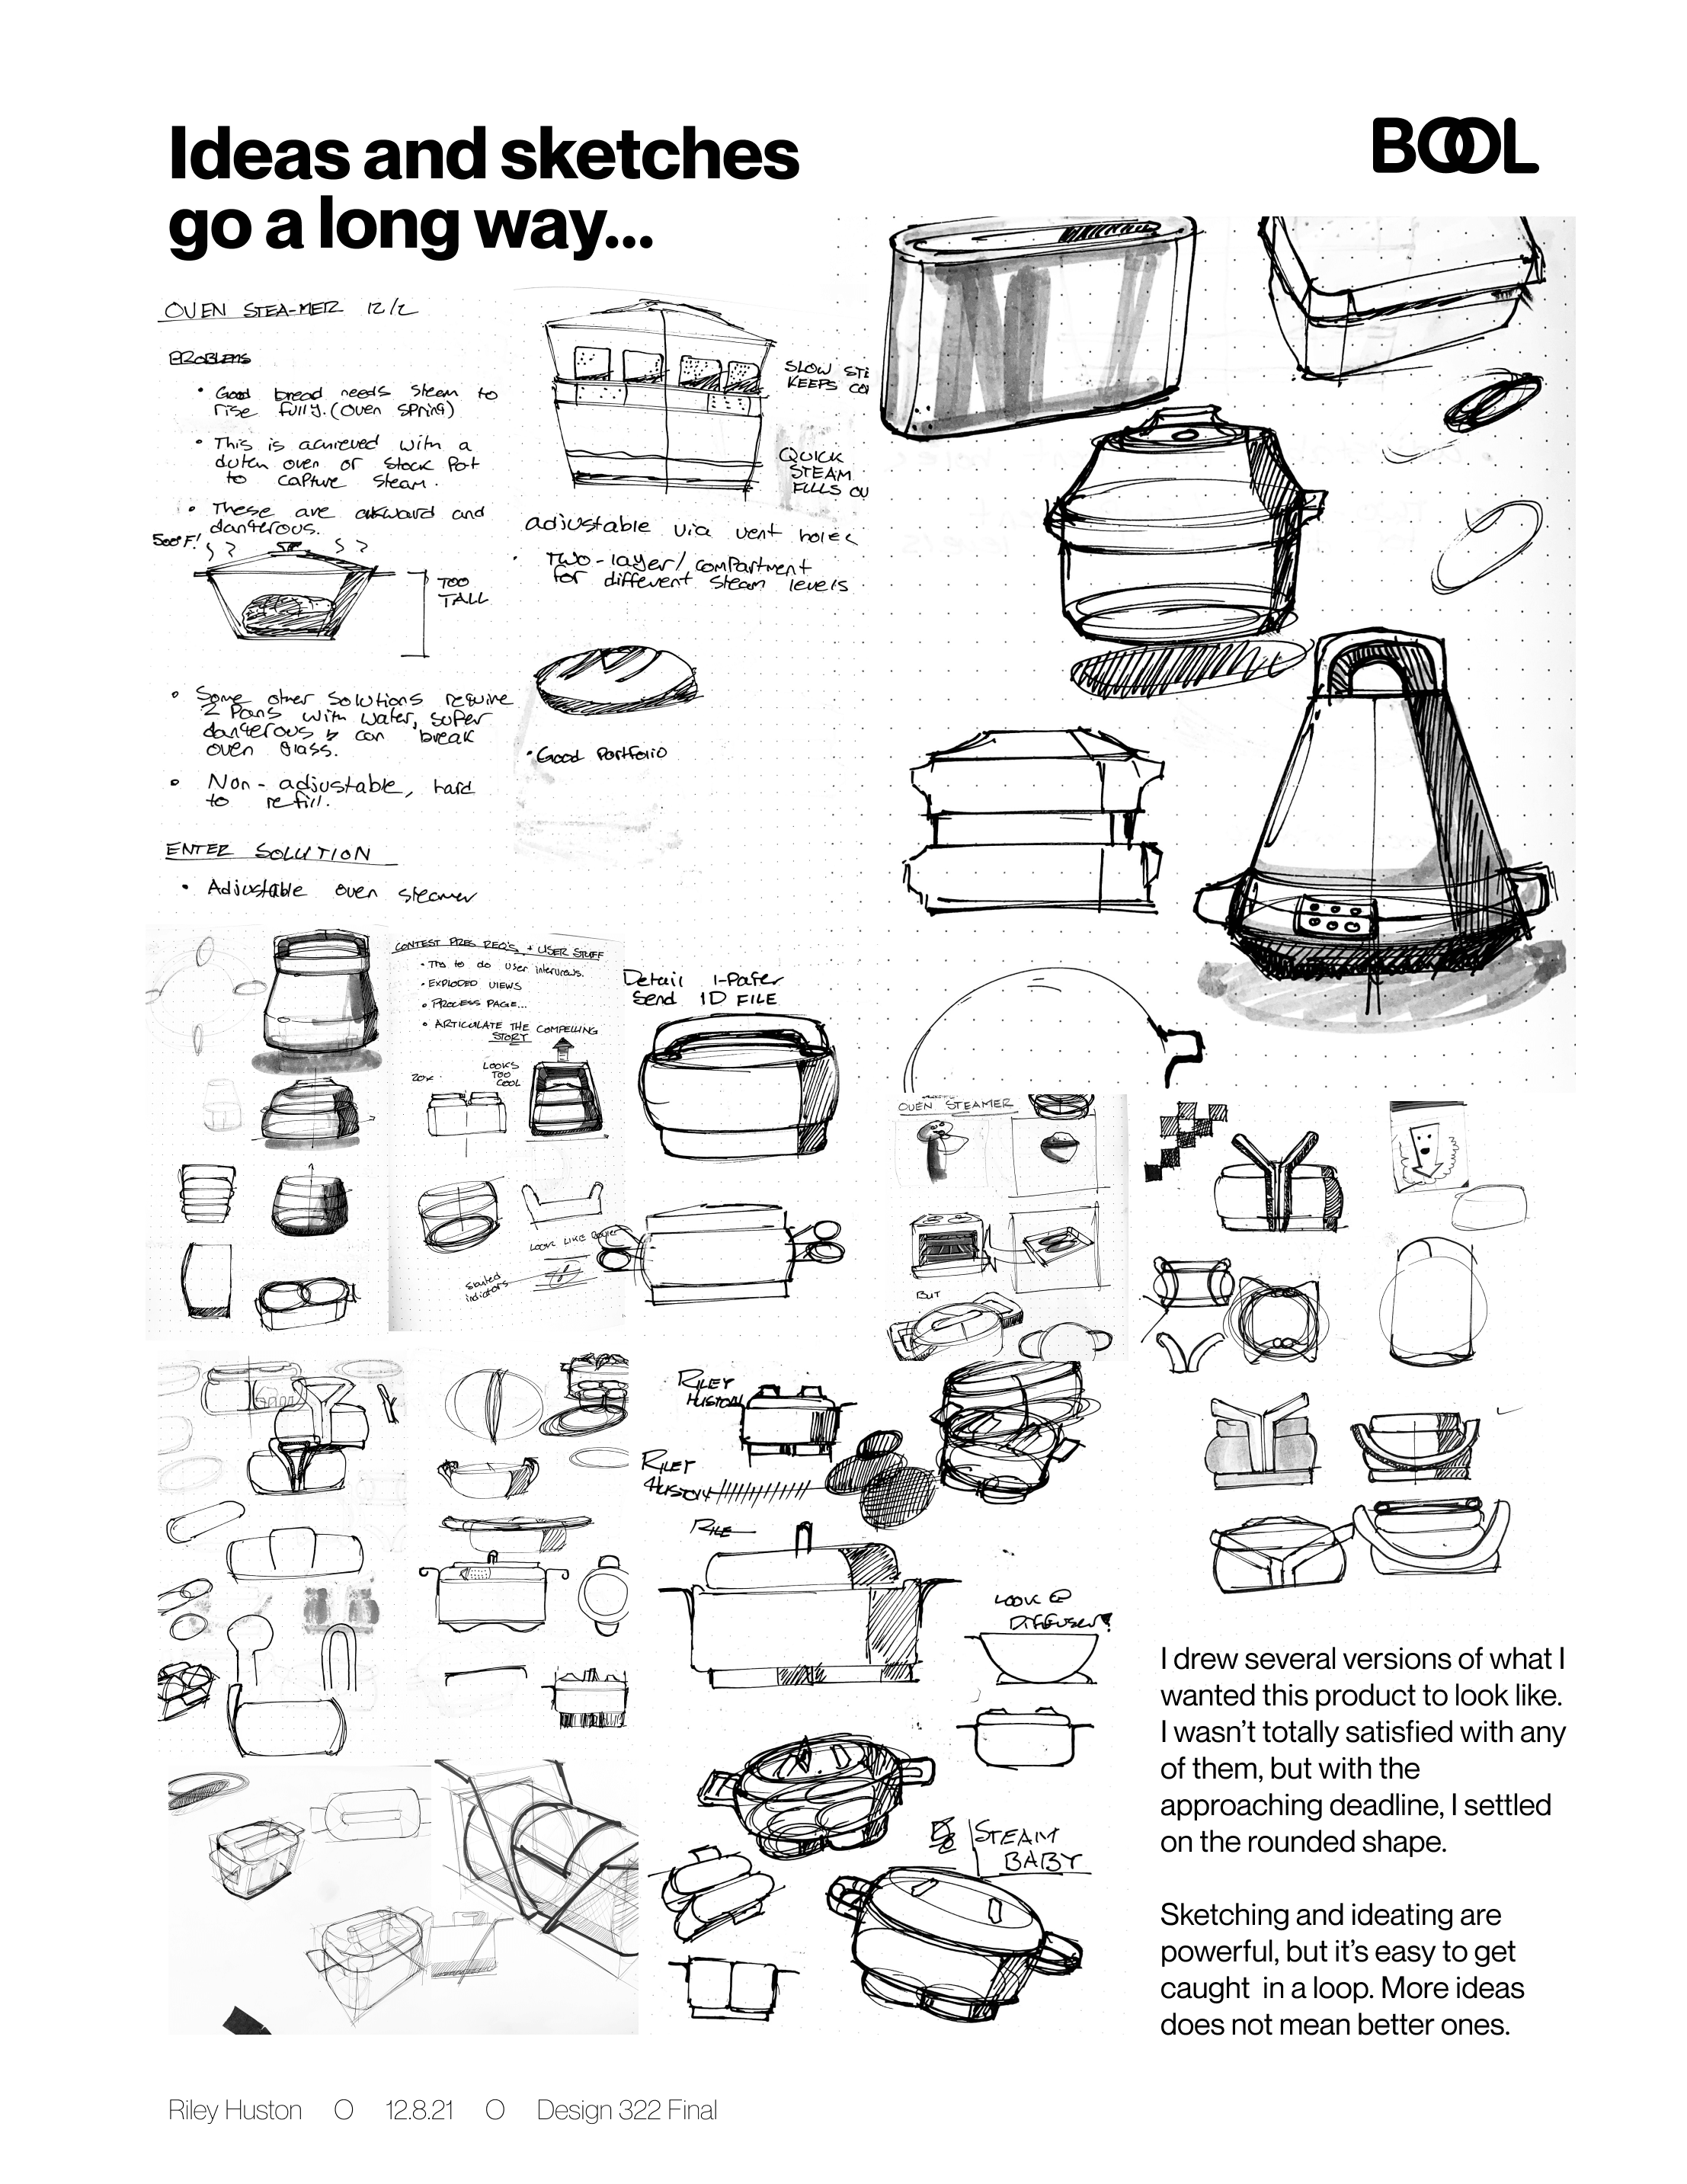 Ideas and sketches
go a long way...
BOOL
OVEN STEA-MER 12/2
PROBLEMS
• Good bread needs steam to
rise fully. (oven spring)
• This is achieved with a
dutch oven or stock pot
to capture steam.
• These are akward and
dangerous.
500°F!
TOO
TALL
• Some other solutions require
2 pans with water, super
dangerous & can break
oven glass.
• Non-adjustable, hard
to refill.
ENTER SOLUTION
• Adjustable oven steamer
SLOW STE
KEEPS CO
QUICK
STEAM
FILLS OU
adjustable via vent holes
• Two-layer/compartment
for different steam levels
• Good Portfolio
CONTEST PRES REQ'S, + USER STUFF
• Try to do user interviews.
• EXPLODED VIEWS
• PROCESS PAGE...
• ARTICULATE THE COMPELLING
STORY
LOOKS
TOO
COOL
LOOK LIKE
slanted
indicators
Detail 1-Pager
Send ID FILE
OVEN STEAMER
BUT
RILEY
HUSTON
RILEY
HUSTON
RILE
LOOK @
DIFFUSER!
STEAM
BABY
I drew several versions of what I
wanted this product to look like.
I wasn't totally satisfied with any
of them, but with the
approaching deadline, I settled
on the rounded shape.
Sketching and ideating are
powerful, but it's easy to get
caught  in a loop. More ideas
does not mean better ones.
Riley Huston O 12.8.21 O Design 322 Final